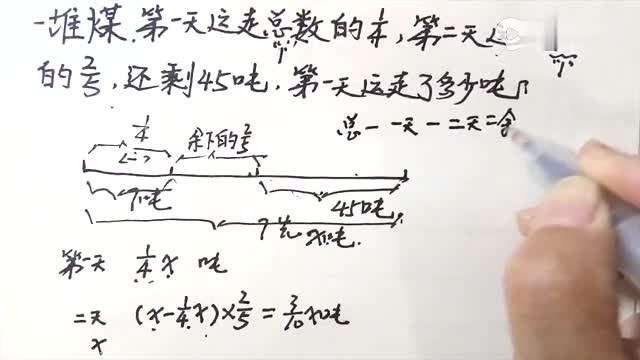 一堆煤,第一天运走总数的1/4,第二天运
的2/5,还剩45吨,第一天运走了多少吨
总-一天-二天=余
1/4
余下的2/5
(一)
?吨
45吨
?吨 x吨
第一天 1/4x 吨
二天 (x-1/4x)×2/5=3/10x吨
x